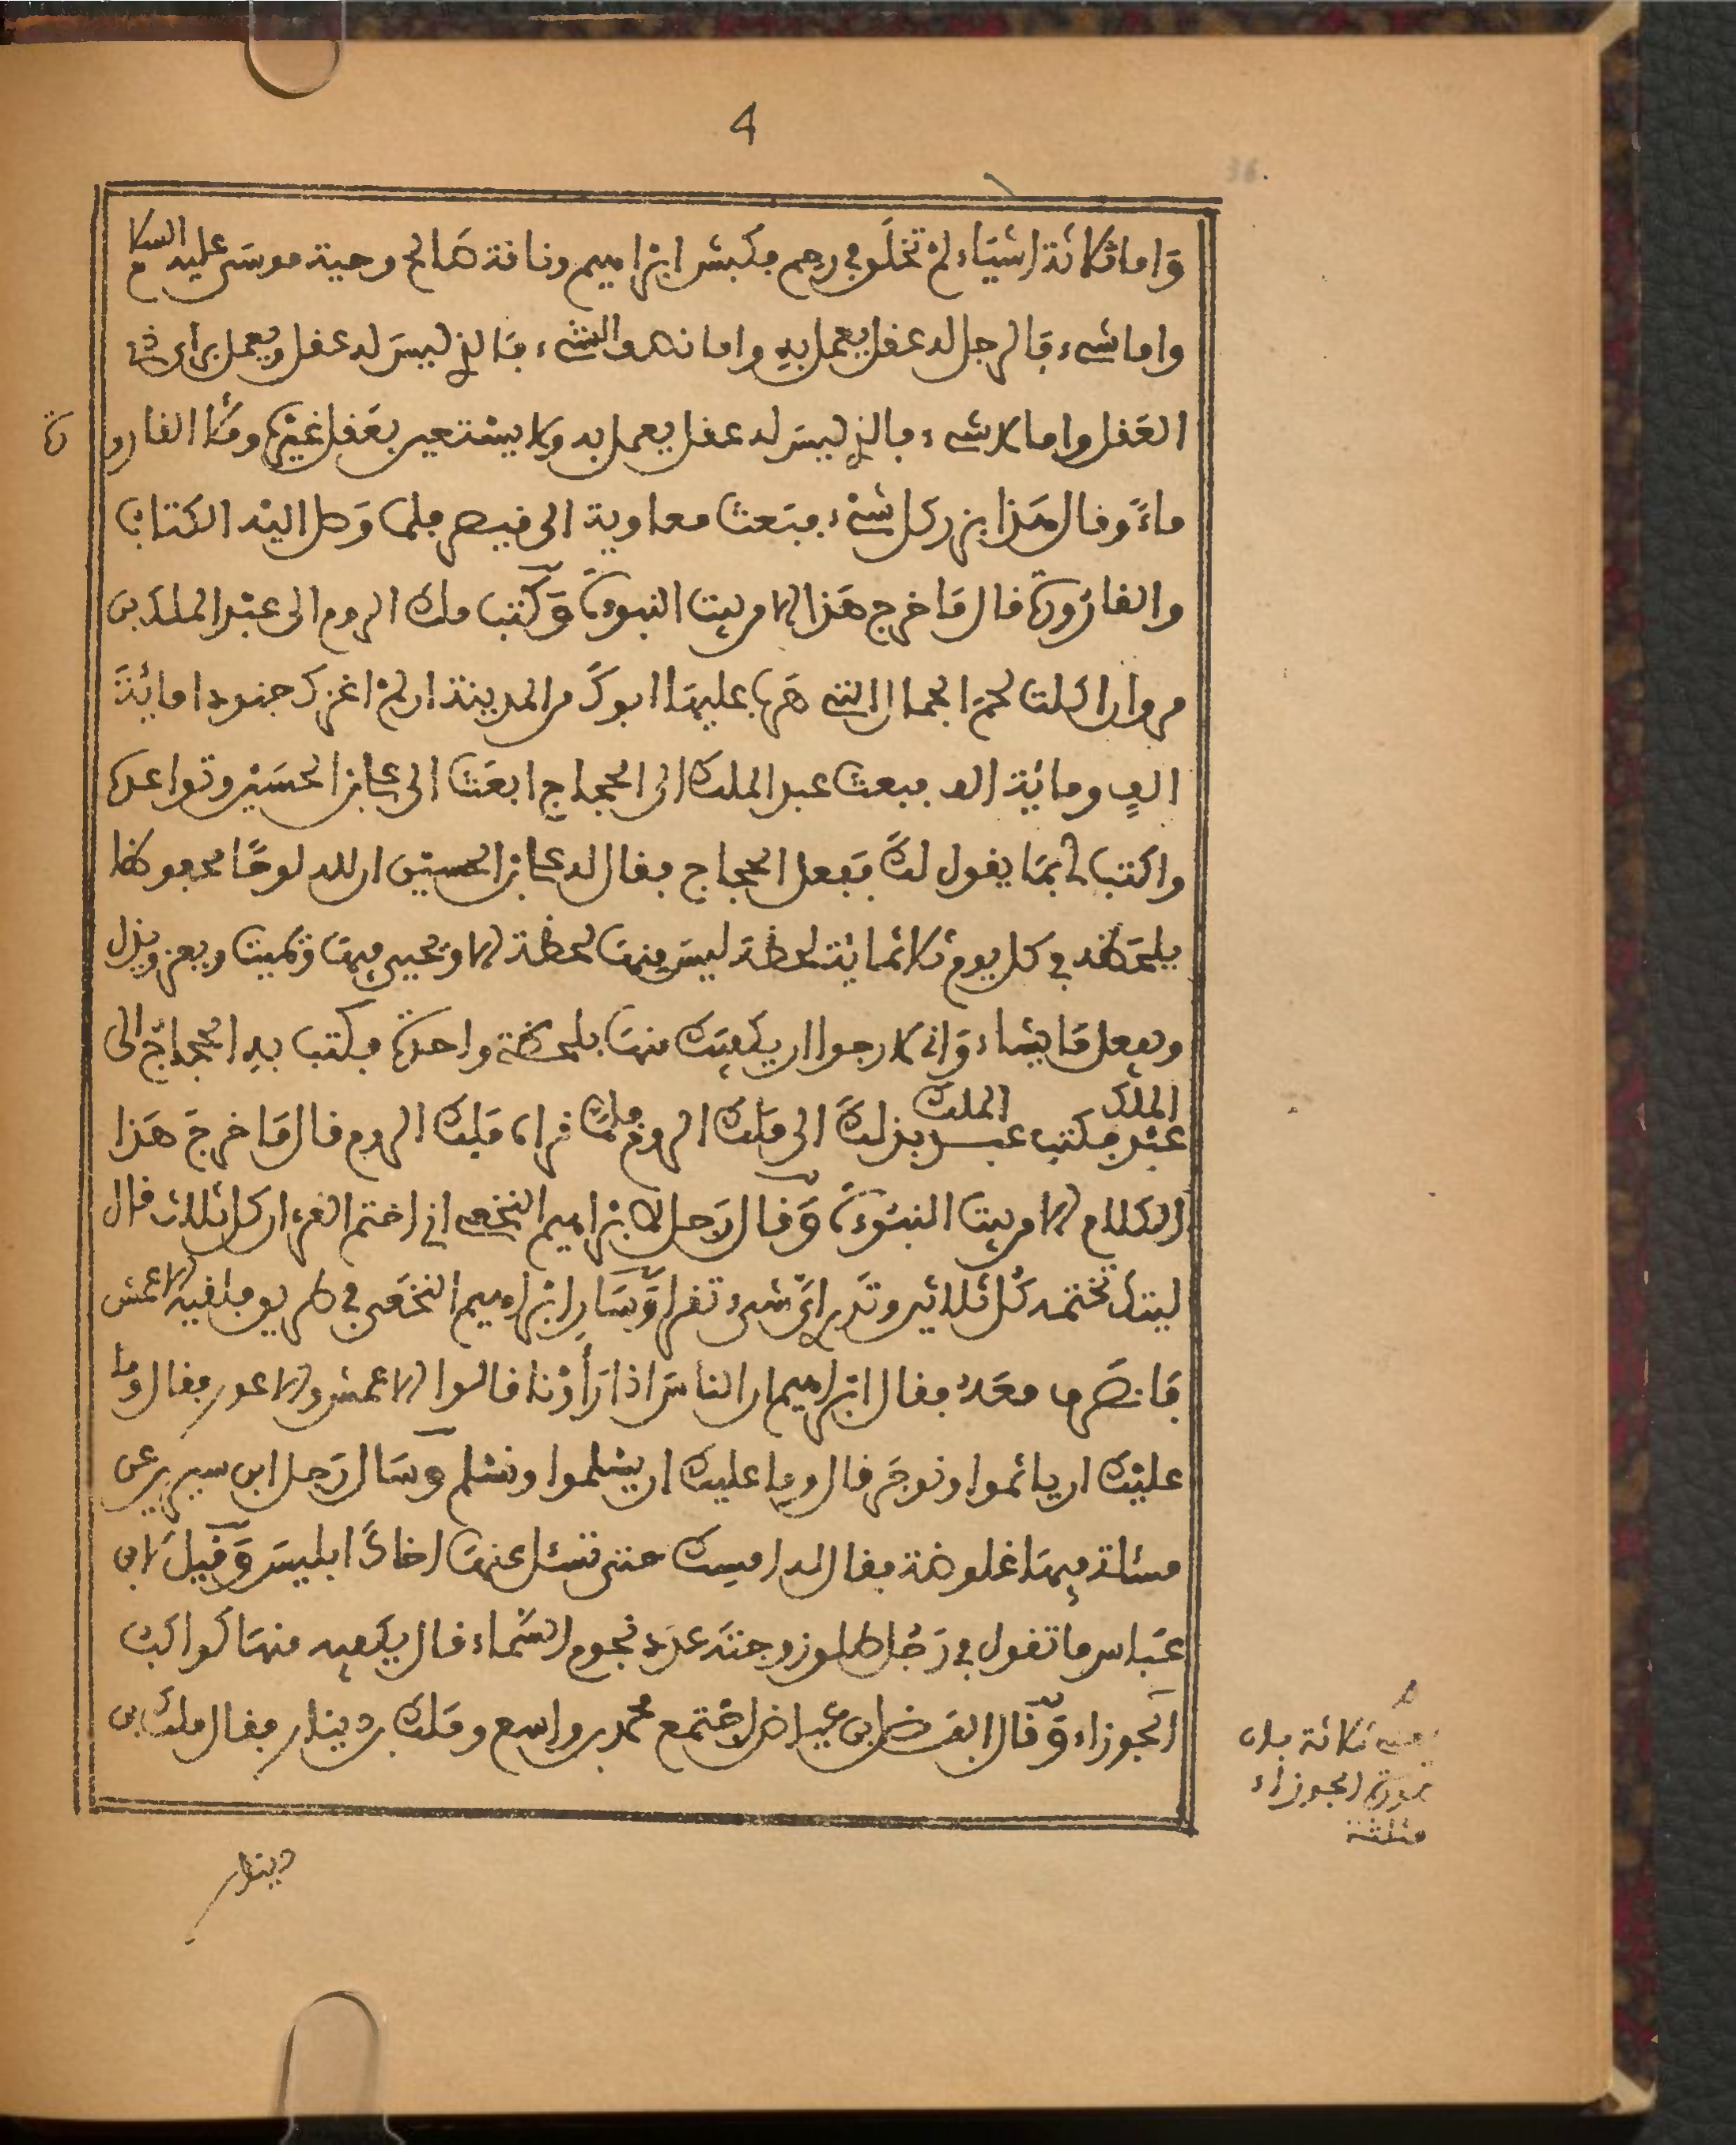 4
واما ثلاثة اشياء لم تخلق في رحم فكبش ابراهيم وناقة صالح وحية موسى عليه السلام
واما شيء فالرجل له عقل يعمل به واما نصف الشيء فالذي ليس له عقل ويعمل براي ذي
العقل واما لا شيء فالذي ليس له عقل يعمل به ولا يستعين بعقل غيره وملأ القارورة
ماء وقال هذا بزر كل شيء فبعث معاوية الى قيصر فلما وصل اليه الكتاب
والقارورة قال ما خرج هذا الا من بيت النبوة وكتب ملك الروم الى عبد الملك بن
مروان اكلت لحم الجمال التي هرب عليها ابوك من المدينة ان لم اغزك جنودا مائة
الف ومائة الف فبعث عبد الملك الى الحجاج ابعث الى علي بن الحسين وتواعده
واكتب لي بما يقول لك ففعل الحجاج فقال له علي بن الحسين ان لله لوحا محفوظا
يلحظه في كل يوم ثلاثمائة لحظة ليس منها لحظة الا ويحيي فيها ويميت ويعز ويذل
ويفعل ما يشاء واني لارجوا ان يكفيك منها بلحظة واحدة فكتب به الحجاج الى
عبد الملك فكتب عبد الملك بذلك الى ملك الروم فلما قراه ملك الروم قال ما خرج هذا
الكلام الا من بيت النبوة وقال رجل لابراهيم النخعي اني اختم القرءان كل ثلاث قال
ليتك تختمه كل ثلاثين وتدري اي شيء تقرا وسار ابراهيم النخعي في طريق فلقيه الاعمش
فانصرف معه فقال ابراهيم ان الناس اذا راونا قالوا الاعمش والاعور فقال وما
عليك ان ياثموا ونوجر قال وما عليك ان يسلموا ونسلم وسال رجل ابن سيرين عن
مسئلة فيها اغلوطة فقال له امسك حتى تسئل عنها اخاك ابليس وقيل لابن
عباس ما تقول في رجل طلق زوجته عدد نجوم السماء قال يكفيه منها كواكب
الجوزاء وقال الفضل بن عياض اجتمع محمد بن واسع وملك بن دينار فقال ملك بن
ثلاثة
الجوزاء
مثلثة
دينار